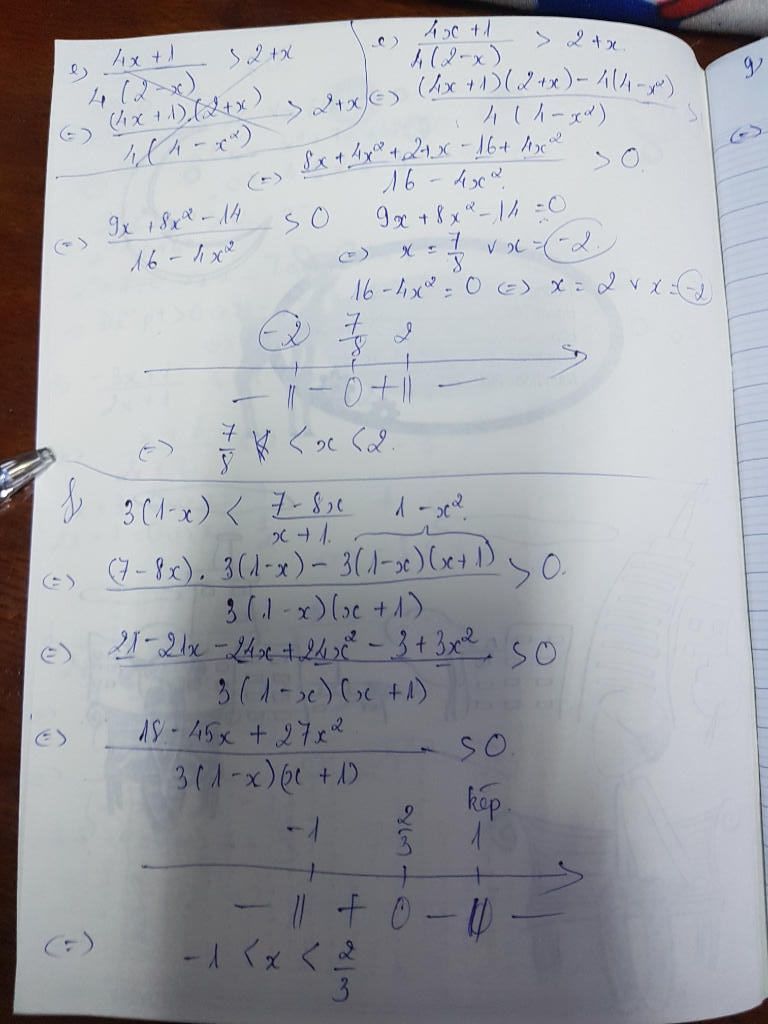 e) (4x+1)/(4(2-x)) > 2+x
(=) ((4x+1).(2+x))/(4(4-x²)) > 2+x
e) (4x+1)/(4(2-x)) > 2+x.
(=) ((4x+1)(2+x)-4(4-x²))/(4(4-x²)) >
(=) (8x+4x²+2+x-16+4x²)/(16-4x²) > 0.
(=) (9x+8x²-14)/(16-4x²) > 0
9x+8x²-14=0
(=) x=7/8 v x=-2.
16-4x²=0 (=) x=2 v x=-2
-2 7/8 2
- || - 0 + || -
(=) 7/8 < x < 2.
f) 3(1-x) < (7-8x)/(x+1) 1-x².
(=) ((7-8x).3(1-x)-3(1-x)(x+1))/(3(1-x)(x+1)) > 0.
(=) (21-21x-24x+24x²-3+3x²)/(3(1-x)(x+1)) > 0
(=) (18-45x+27x²)/(3(1-x)(x+1)) > 0.
kép.
-1 2/3 1
- || + 0 - || -
(=) -1 < x < 2/3
g)
(=)